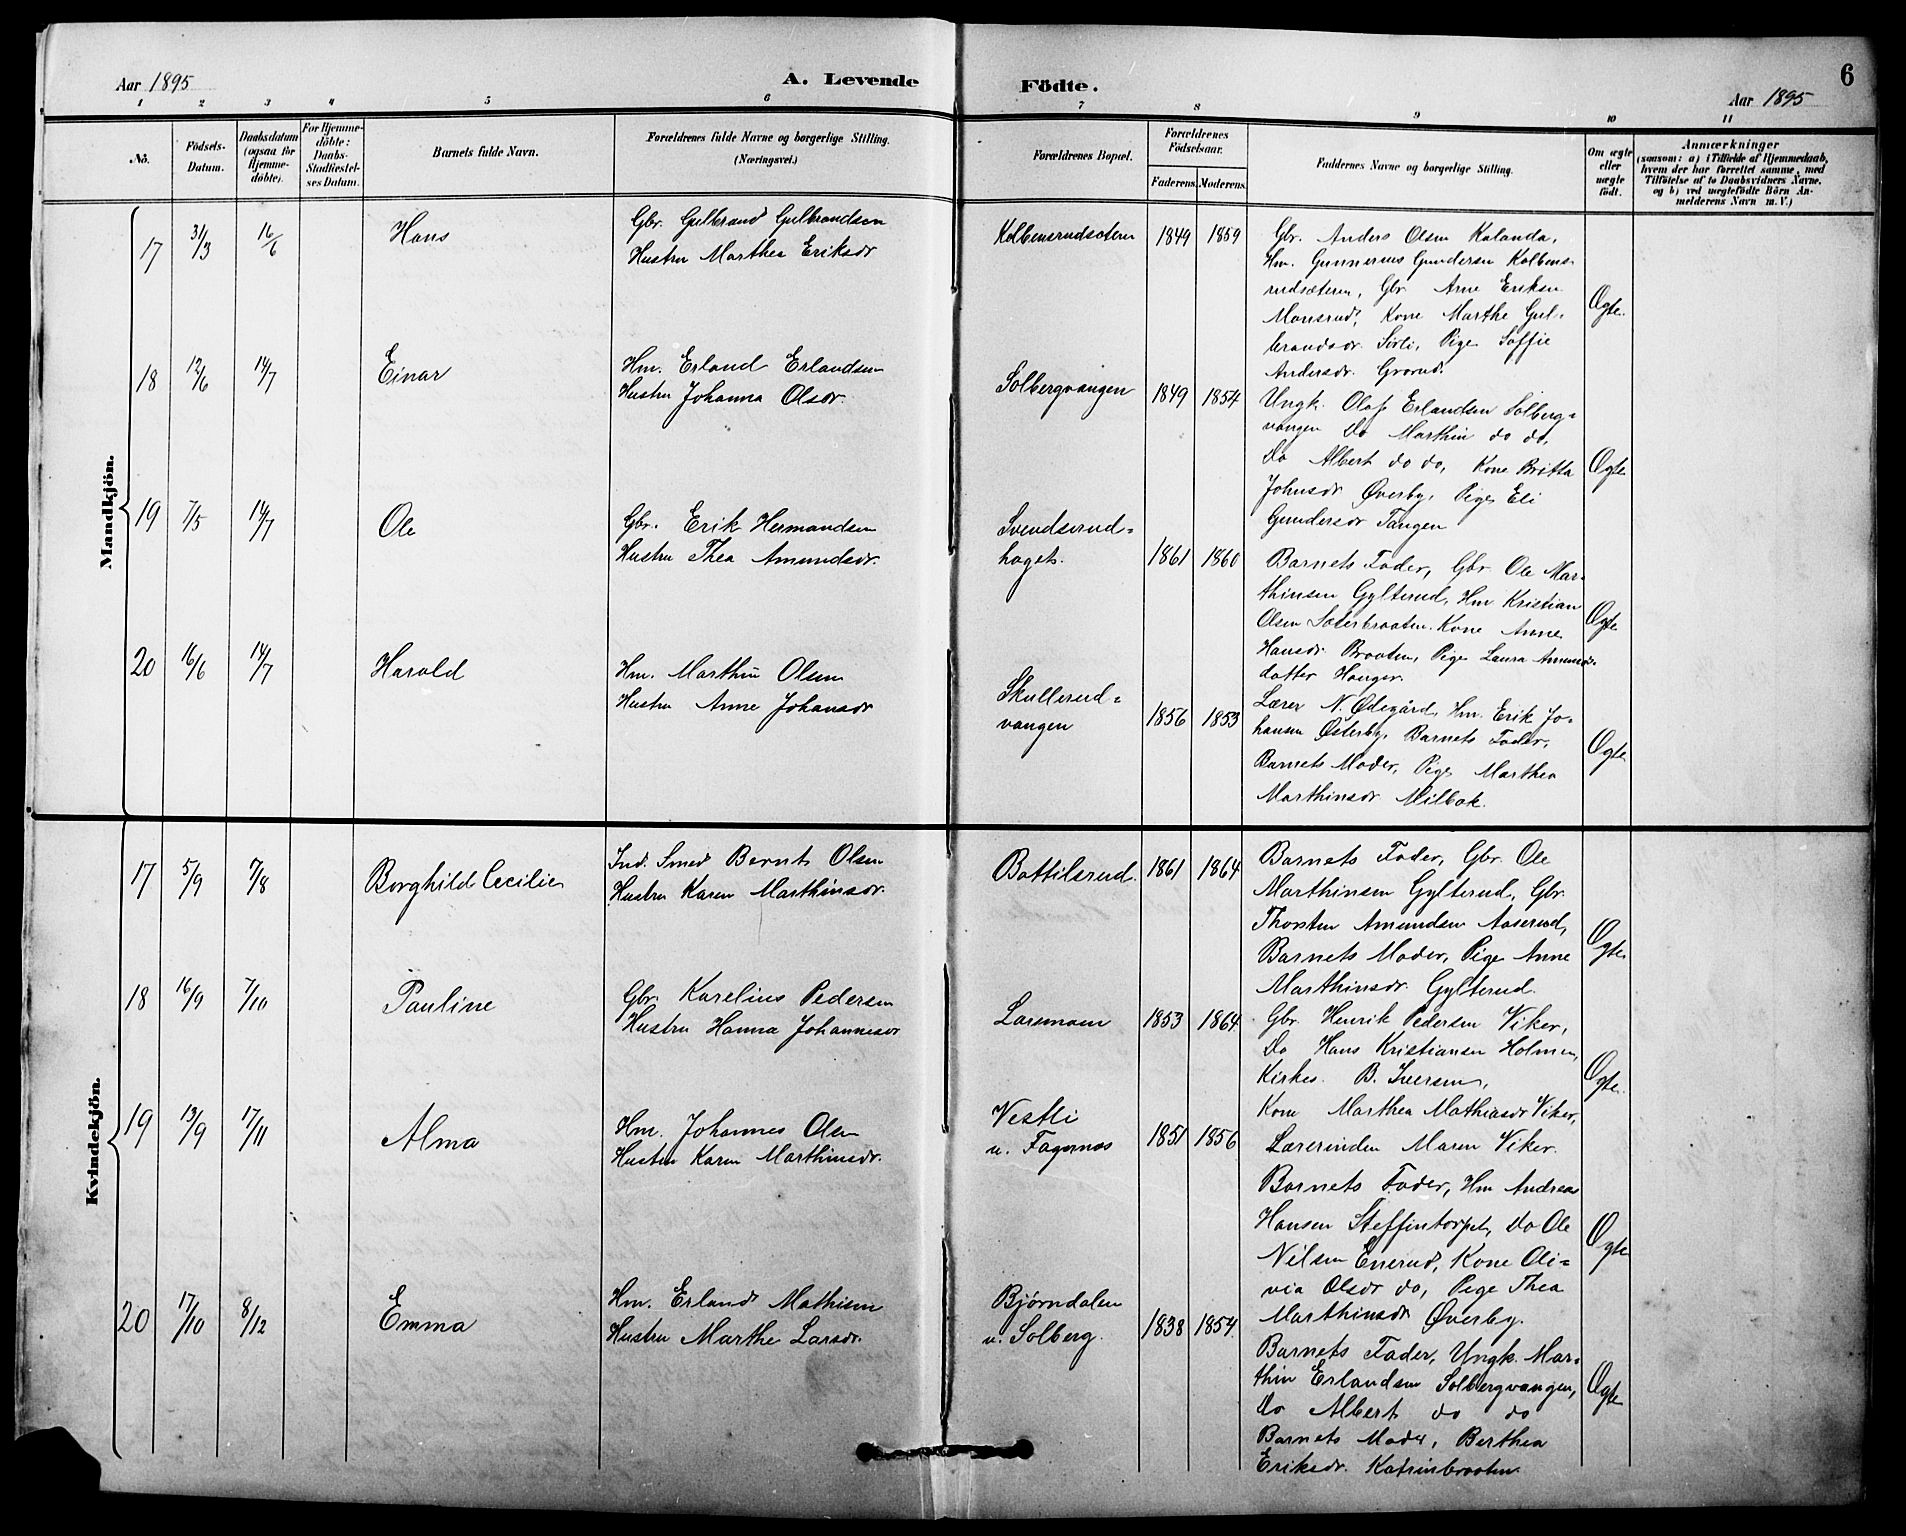 Aar 1895
A. Levende Födte.
6
Aar 1895
1 2 3 4 5 6 7 8 9 10 11
No.
Födsels-
Datum.
Daabsdatum
(ogsaa for
Hjemme-
döbte).
For Hjemme-
döbte:
Daabs-
Stadfæstel-
ses Datum.
Barnets fulde Navn.
Forældrenes fulde Navne og borgerlige Stilling.
(Næringsvei.)
Forældrenes Bopæl.
Forældrenes
Födselsaar.
Faderens. Moderens.
Faddernes Navne og borgerlige Stilling.
Om ægte
eller
uægte
födt.
Anmærkninger
(saasom: a) i Tilfælde af Hjemmedaab,
hvem der har forrettet samme, med
Tilföielse af to Daabsvidners Navne,
og b) ved uægtefödte Börn An-
melderens Navn m. V.)
Mandkjön.
17 31/3 16/6 Hans
Gbr. Gulbrand Gulbrandsen
Hustru Marthea Eriksdr
Kolbensrudsæteren 1849 1859
Gbr. Anders Olsen Kalanda,
Hm. Gunnerius Gundersen Kolbens-
rudsæteren, Gbr Arne Eriksen
Monsrud, Kone Marthe Gul-
brandsdr. Sörli, Pige Soffie
Andersdr. Grorud.
Ægte.
18 12/6 14/7 Einar
Hm. Erland Erlandsen
Hustru Johanna Olsdr.
Solbergvangen 1849 1854
Ungk. Olaf Erlandsen Solberg-
vangen Do Marthin do do,
Do Albert do do, Kone Britta
Johnsdr Øverby, Pige Eli
Gundersdr Tangen
Ægte
19 7/5 14/7 Ole
Gbr. Erik Hermandsen
Hustru Thea Amundsdr.
Svendserud-
haget. 1861 1860
Barnets Fader, Gbr Ole Mar-
thinsen Gylterud, Hm Kristian
Olsen Sæterbraaten. Kone Anne
Hansdr. Braaten, Pige Laura Amunds-
datter Hanger.
Ægte
20 16/6 14/7 Harald
Hm. Marthin Olsen
Hustru Anne Johansdr
Skullerud-
vangen 1856 1853
Lærer N. Ødegård, Hm. Erik Jo-
hansen Østerby, Barnets Fader,
Barnets Moder, Pige Marthea
Marthinsdr Milbak.
Ægte
Kvindekjön.
17 5/9 7/8 Borghild Cecilie
Ind. Smed Bernt Olsen
Hustru Karen Marthinsdr.
Bottilsrud. 1861 1864
Barnets Fader, Gbr. Ole
Marthinsen Gylterud, Gbr.
Thorsten Amundsen Aaserud,
Barnets Moder, Pige Anne
Marthinsdr. Gylterud.
Ægte
18 16/9 7/10 Pauline
Gbr. Karelius Pedersen
Hustru Hanna Johannesdr
Larsmoen 1853 1864
Gbr. Henrik Pedersen Viker,
Do Hans Kristiansen Holmen,
Kirkes. B. Iversen,
Kone Marthea Mathiasdr Viker,
Lærerinden Maren Viker.
Ægte.
19 13/9 17/11 Alma
Hm. Johannes Olsen
Hustru Karen Marthinsdr.
Vestli
u. Fagernæs 1851 1856
Barnets Fader, Hm Andreas
Hansen Steffintorpet, Do Ole
Nilsen Enerud, Kone Oli-
via Olsdr do, Pige Thea
Marthinsdr Øverby.
Ægte
20 17/10 8/12 Emma
Hm. Erland Mathisen
Hustru Marthe Larsdr.
Bjørndalen
u. Solberg. 1838 1854.
Barnets Fader, Ungk. Mar-
thin Erlandsen Solbergvangen,
Do Albert do do
Barnets Moder, Berthea
Eriksdr. Katrinbraaten.
Ægte